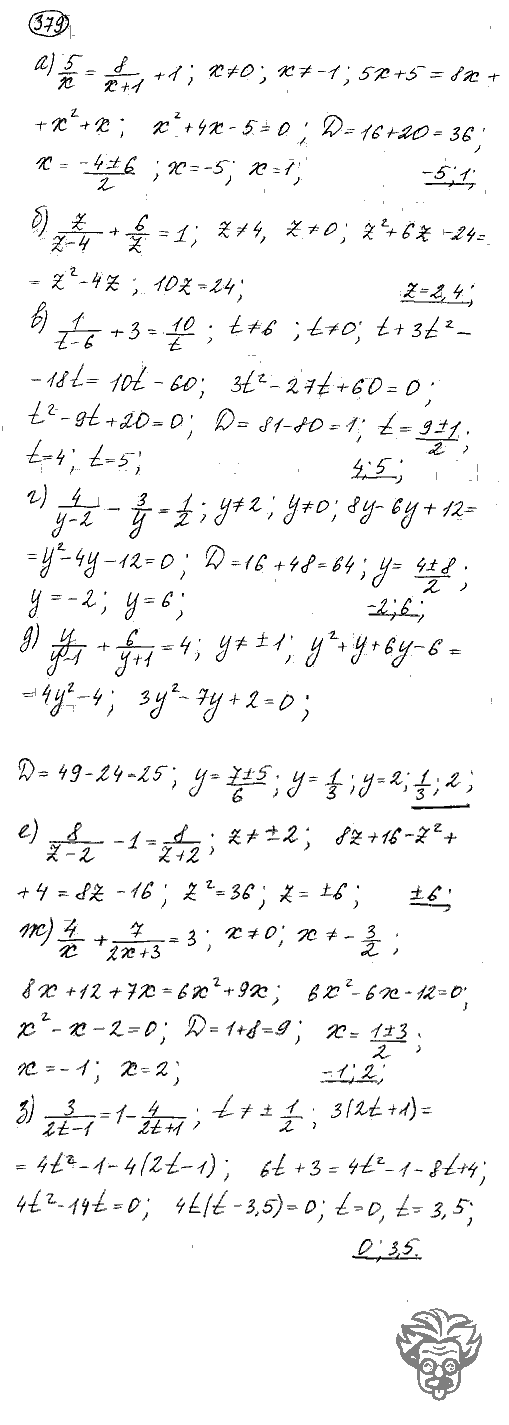 379
а) 5/x = 8/(x+1) + 1; x≠0; x≠-1; 5x+5 = 8x +
+x²+x; x²+4x-5=0; D=16+20=36;
x = (-4±6)/2; x=-5; x=1; -5; 1;
б) z/(z-4) + 6/z = 1; z≠4, z≠0; z²+6z-24=
= z²-4z; 10z=24; z=2,4;
в) 1/(t-6) + 3 = 10/t; t≠6; t≠0; t+3t²-
-18t = 10t-60; 3t²-27t+60=0;
t²-9t+20=0; D=81-80=1; t=(9±1)/2;
t=4; t=5; 4; 5;
г) 4/(y-2) - 3/y = 1/2; y≠2; y≠0; 8y-6y+12=
=y²-4y-12=0; D=16+48=64; y=(4±8)/2;
y=-2; y=6; -2; 6;
д) y/(y-1) + 6/(y+1) = 4; y≠±1; y²+y+6y-6=
=4y²-4; 3y²-7y+2=0;
D=49-24=25; y=(7±5)/6; y=1/3; y=2; 1/3; 2;
е) 8/(z-2) - 1 = 8/(z+2); z≠±2; 8z+16-z²+
+4 = 8z-16; z²=36; z=±6; ±6;
ж) 4/x + 7/(2x+3) = 3; x≠0; x≠-3/2;
8x+12+7x=6x²+9x; 6x²-6x-12=0;
x²-x-2=0; D=1+8=9; x=(1±3)/2;
x=-1; x=2; -1; 2;
з) 3/(2t-1) = 1-4/(2t+1); t≠±1/2; 3(2t+1)=
=4t²-1-4(2t-1); 6t+3=4t²-1-8t+4;
4t²-14t=0; 4t(t-3,5)=0; t=0, t=3,5;
0; 3,5.